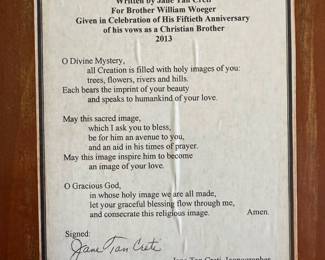 Written by Jane Tan Creti
For Brother William Woeger
Given in Celebration of His Fiftieth Anniversary
of his vows as a Christian Brother
2013
O Divine Mystery,
all Creation is filled with holy images of you:
trees, flowers, rivers and hills.
Each bears the imprint of your beauty
and speaks to humankind of your love.
May this sacred image,
which I ask you to bless,
be for him an avenue to you,
and an aid in his times of prayer.
May this image inspire him to become
an image of your love.
O Gracious God,
in whose holy image we are all made,
let your graceful blessing flow through me,
and consecrate this religious image. Amen.
Signed:
Jane Tan Creti
Jane Tan Creti, Iconographer